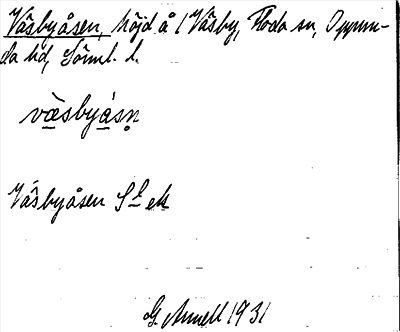 Väsbyåsen, höjd å 1 Väsby, Floda sn, Oppun-
da hd, Sörml. l.
væ̀sbyåsn̥
Väsbyåsen Sk ek
G. Annell 1931